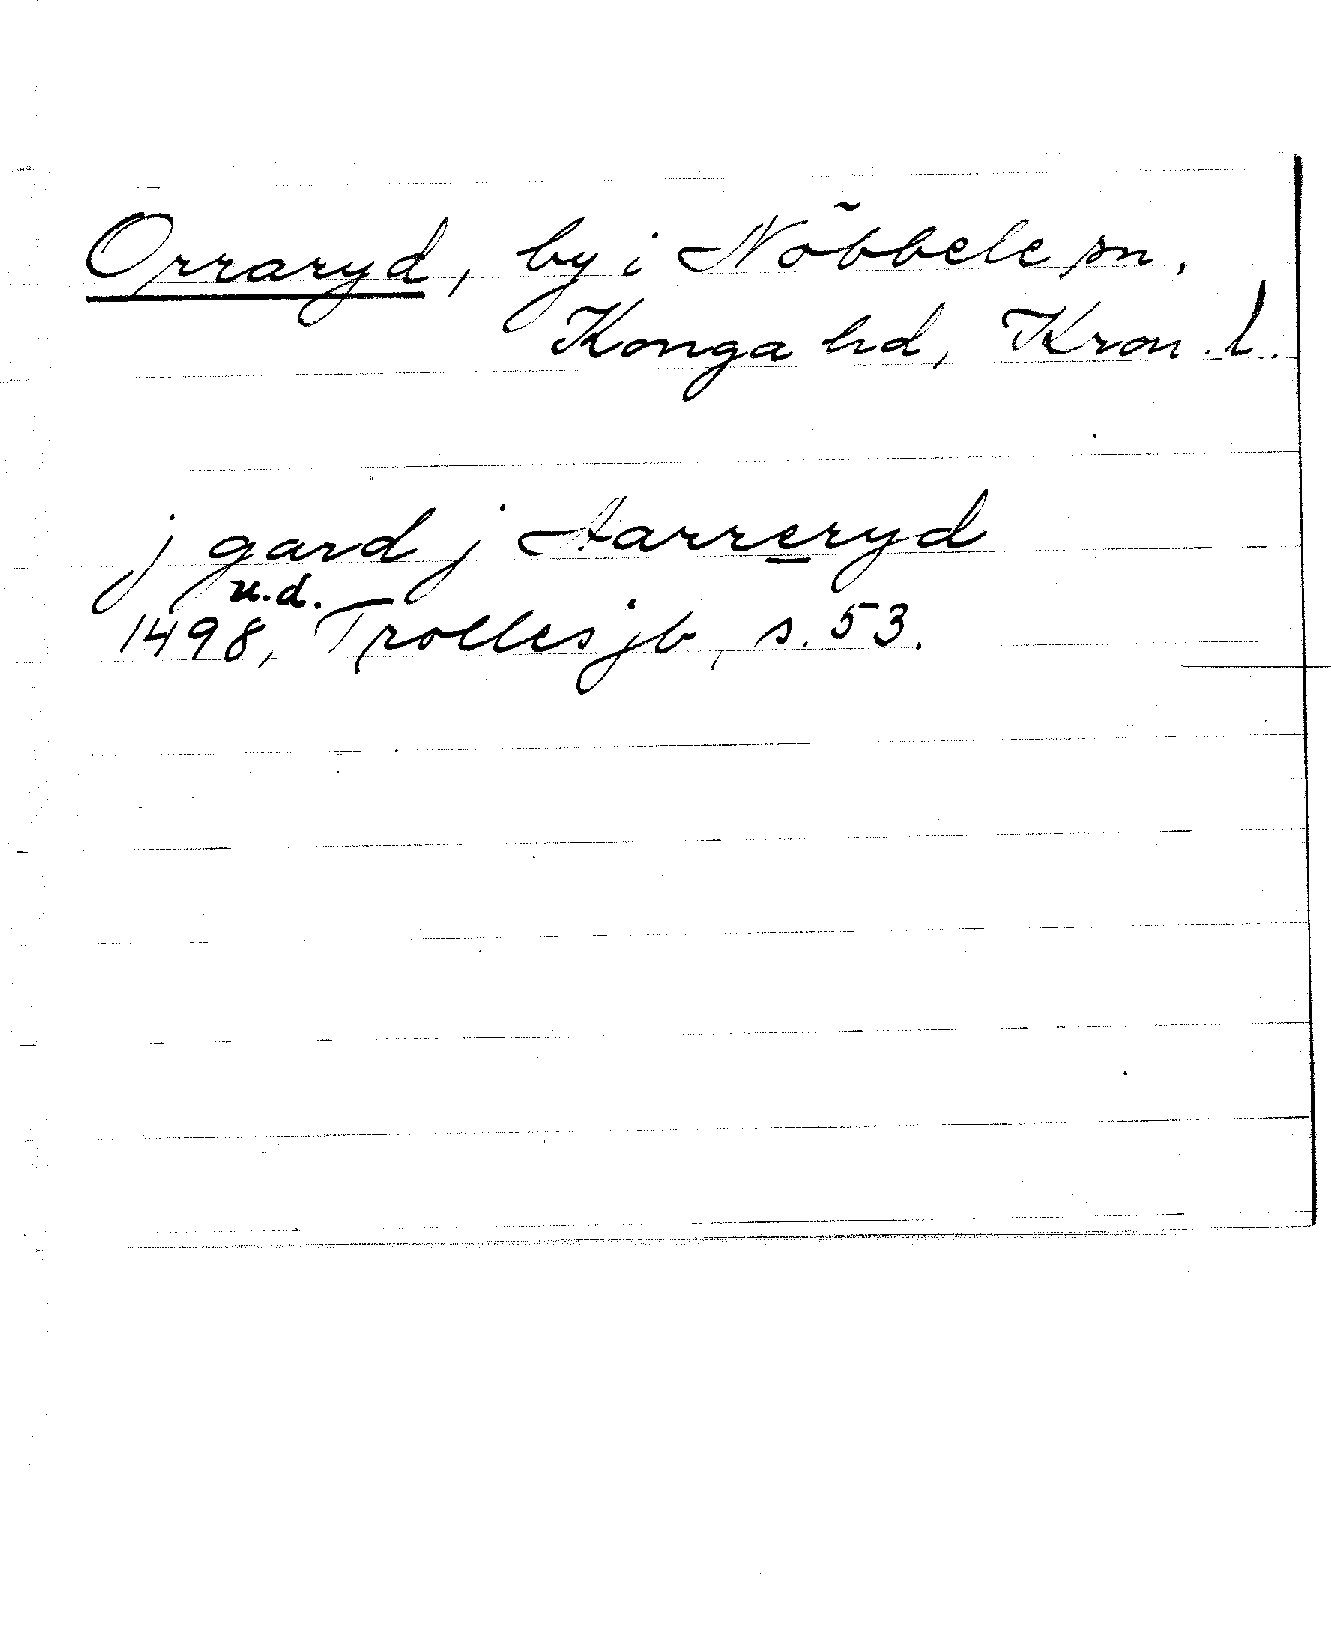 Orraryd, by i Nöbbele sn,
Konga hd, Kron. l.
j gard j Aarreryd
u.d.
1498, Trolles jb, s. 53.